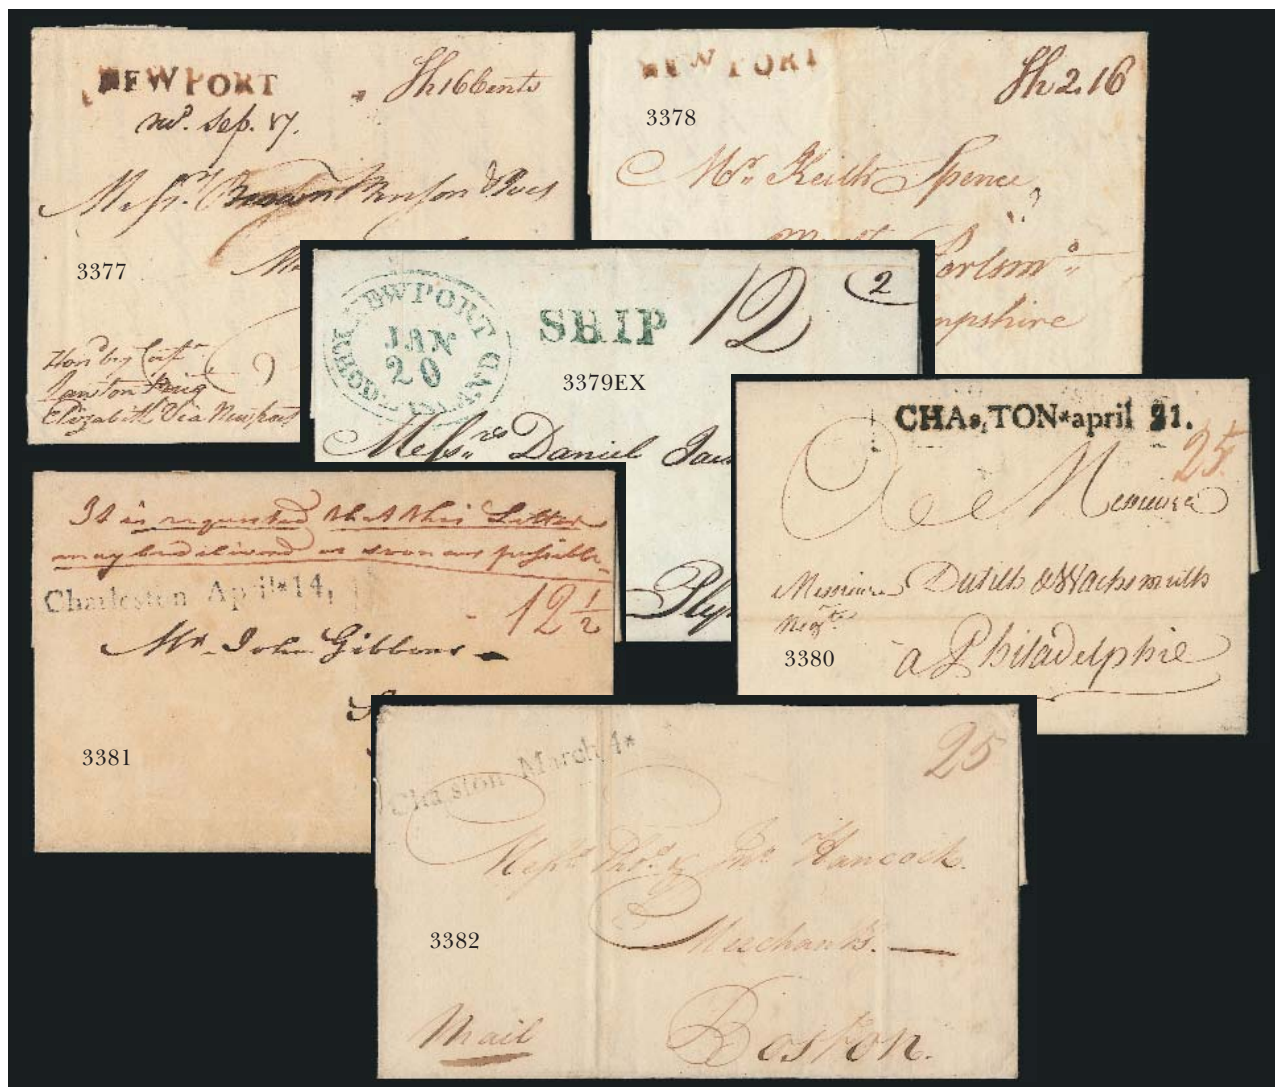 NEWPORT
Sh 16 Cents
Sep. 17.
Messrs. Brown Benson & Ives
3377
Hond by Capt
Elizabeth Via Newport
NEWPORT
Sh 2.16
3378
Mr. Keith Spence
Portsmo
mpshire
NEWPORT
JAN
20
RHODE ISLAND
SHIP
12
2
3379EX
Messrs Daniel
Ply
CHAs.TON*april 21.
25
Messieurs
Messieurs Dutilh & Wachsmuth
Negts
3380
a Philadelphie
It is requested that this Letter
may be delivered as soon as possible
Charleston April*14,
12 1/2
Mr. John Gibbons
3381
Chaston March 4*
25
Messrs Thos. & Jno. Hancock
3382
Merchants.
Mail
Boston.